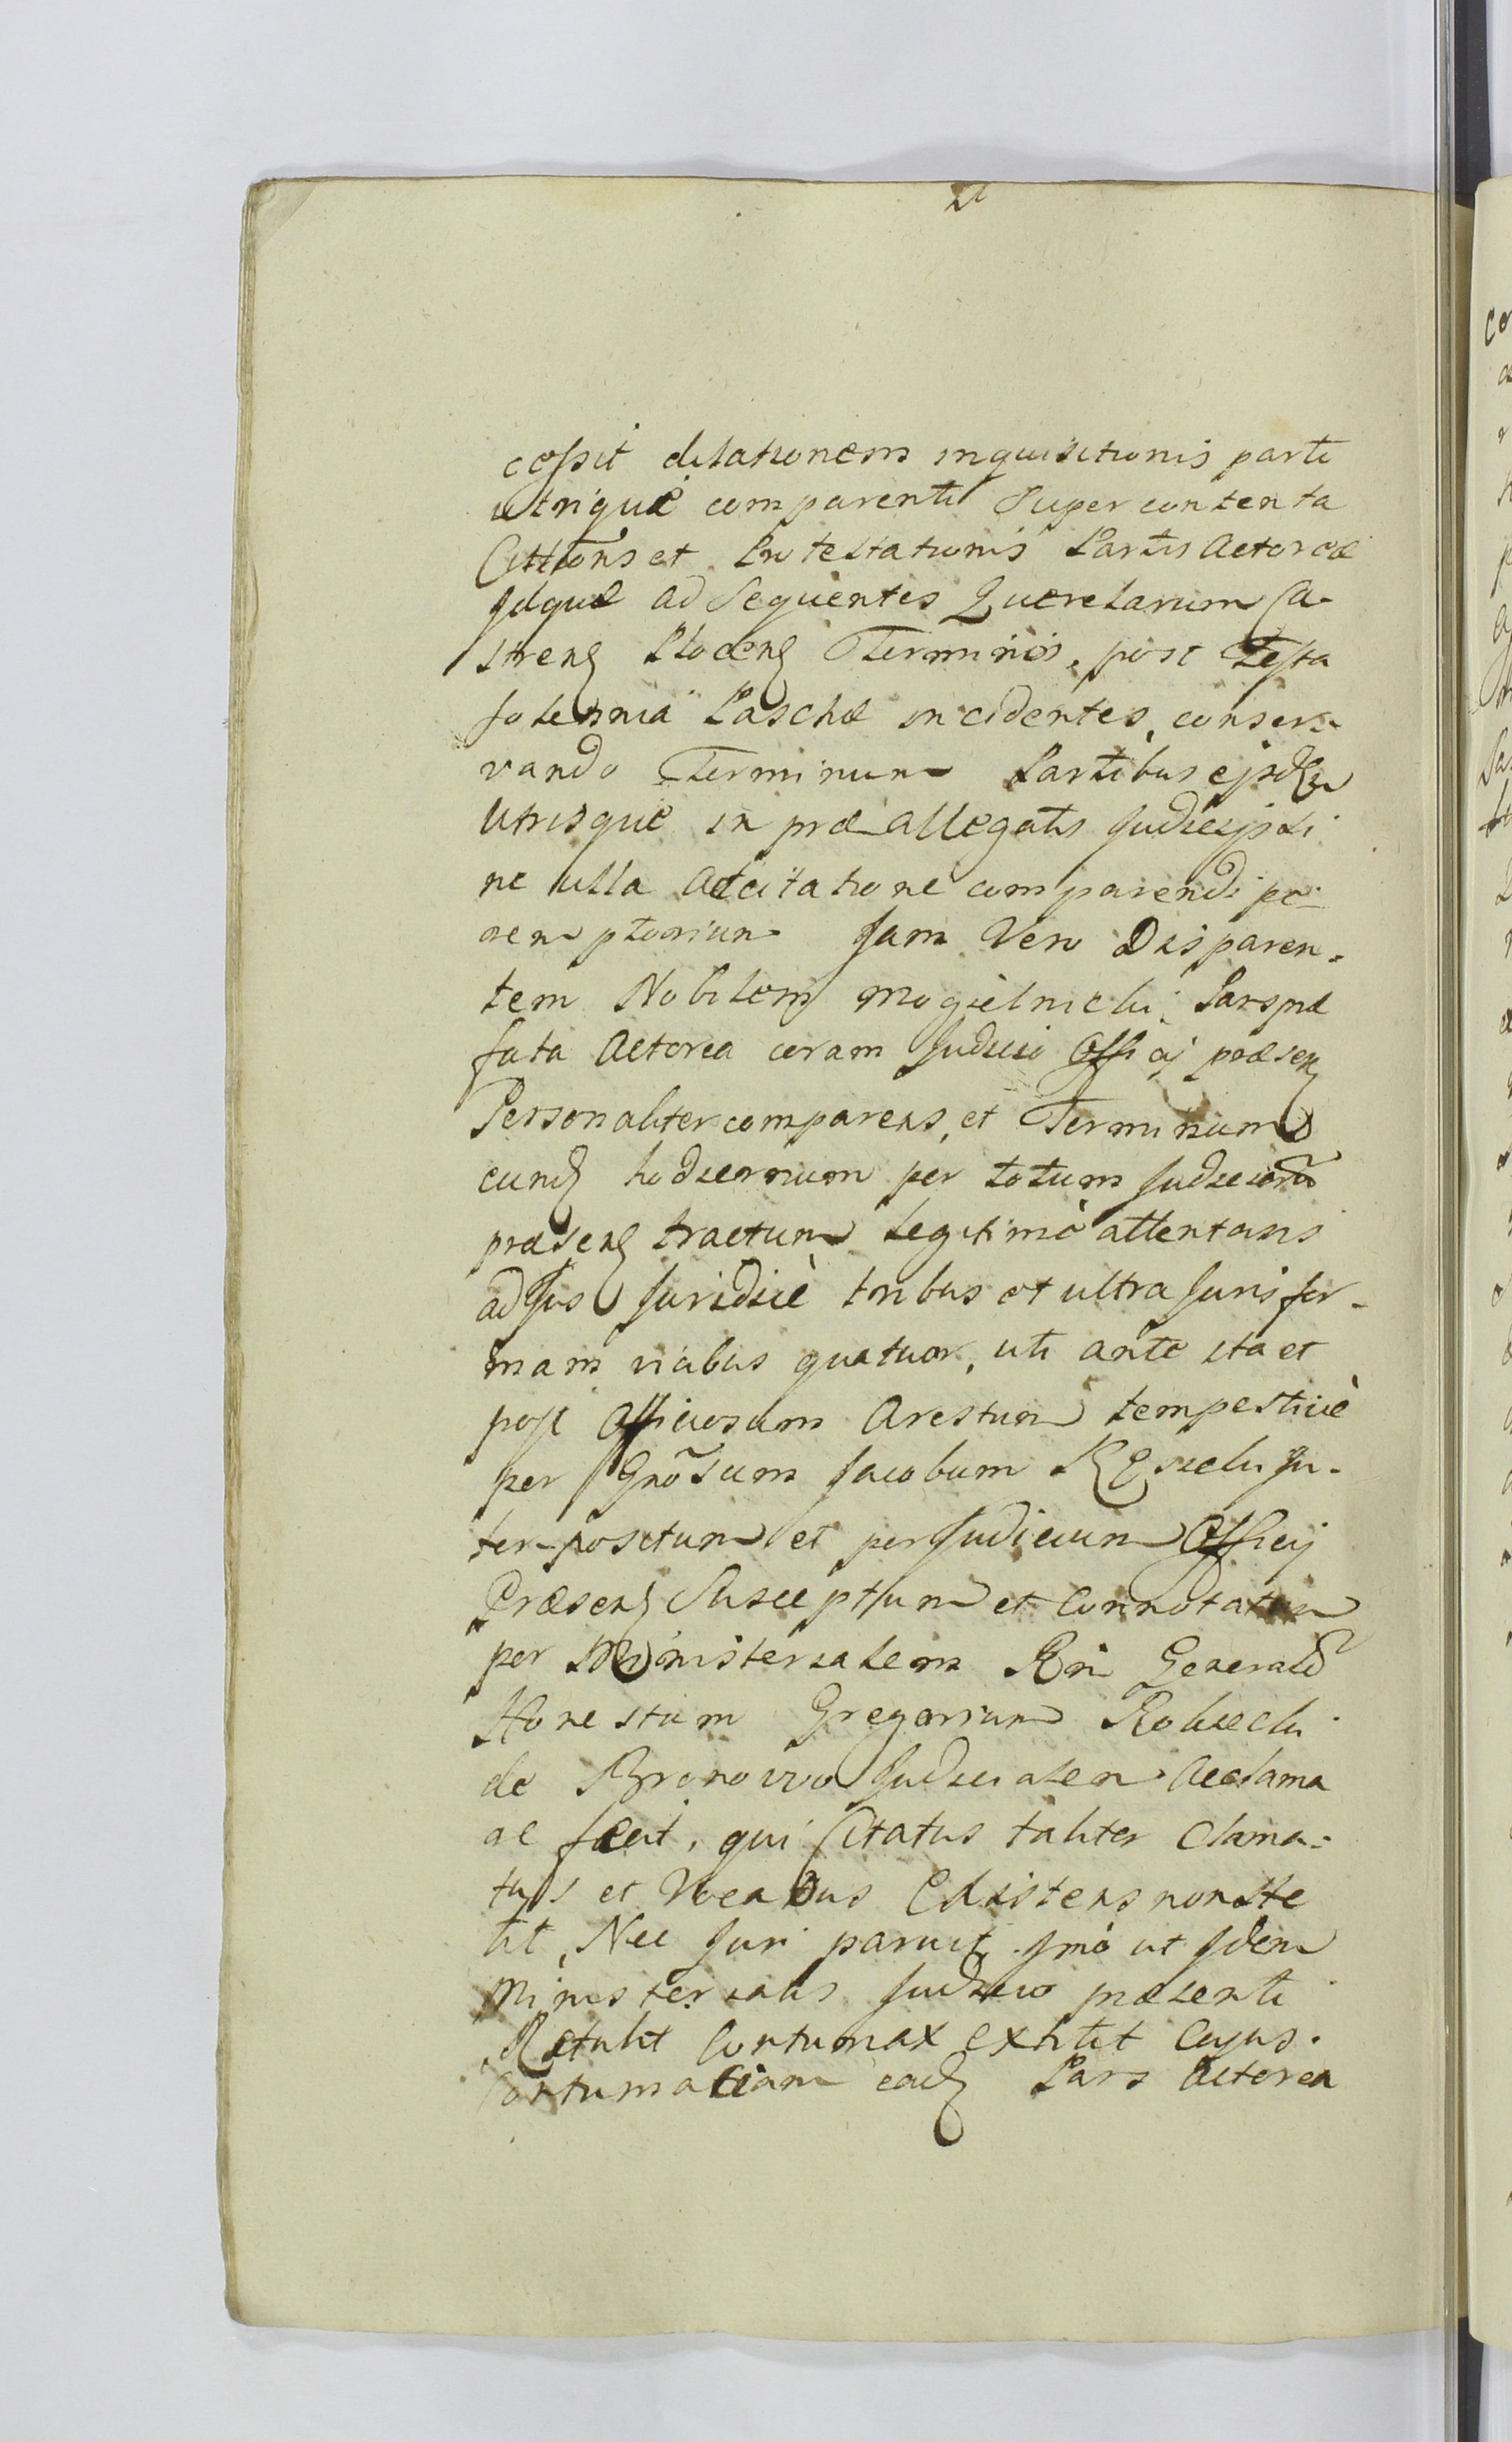 cessit dilationem inquisitionis parti
utrique comparenti super contenta
Citt̃ons et Protestationis Partis Actoreæ
Idque ad Sequentes Querelarum Ca-
strens Plocens Terminos, post Festa
solennia Paschæ incidentes, conser-
vando Terminum Partibus ejsdem
Utrisque in præ allegatis Judicijs si
ne ulla adcitatione comparendi pe-
remptorium Jam Vero Disparen-
tem Nobilem Mogielnicki Pars præ
fata Actorea coram Judicio Officij præsen
Personaliter comparens, et Terminum
eund hodiernum per totum Judiciorũ
præsens tractum legitimè attentans
ad Jus Juridicè tribus et ultra Juris for-
mam vicibus quatuor, uti ante ita et
post Officiosum Arestum tempestivè
per Gnõsum Jacobum In-
terpositum et per Judicium Officij
Præsens Susceptum et Connotatum
per Ministerialem Rni Generalẽ
Honestum Gregorium Rolircki
de Bronowo Judicialem Acclama
re fecit, qui Citatus taliter Clama-
tus et Vocatus Existens non ste
tit, Nec Juri paruit, Imò ut Idem
Ministerialis Judicio præsenti
Retulit Contumax extitit Cujus
Contumaciam ead Pars Actorea